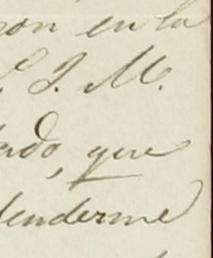 ron en la
S. I. M.
ado, que
denderme